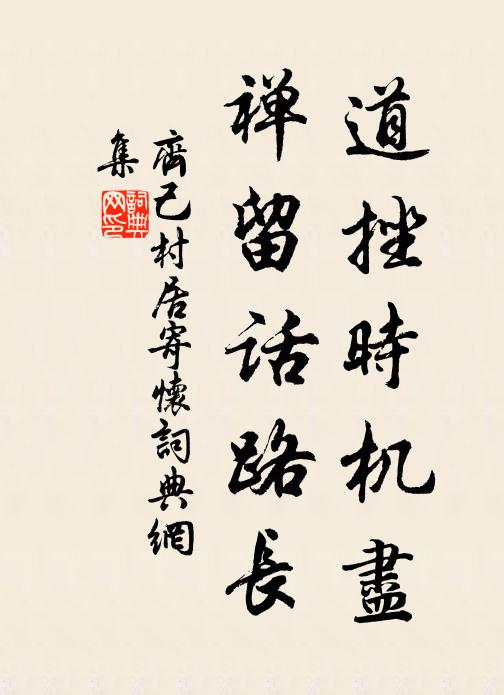 道挫時机盡
禅留话路長
齊己村居寄懷詞典網
集
詞典
网印